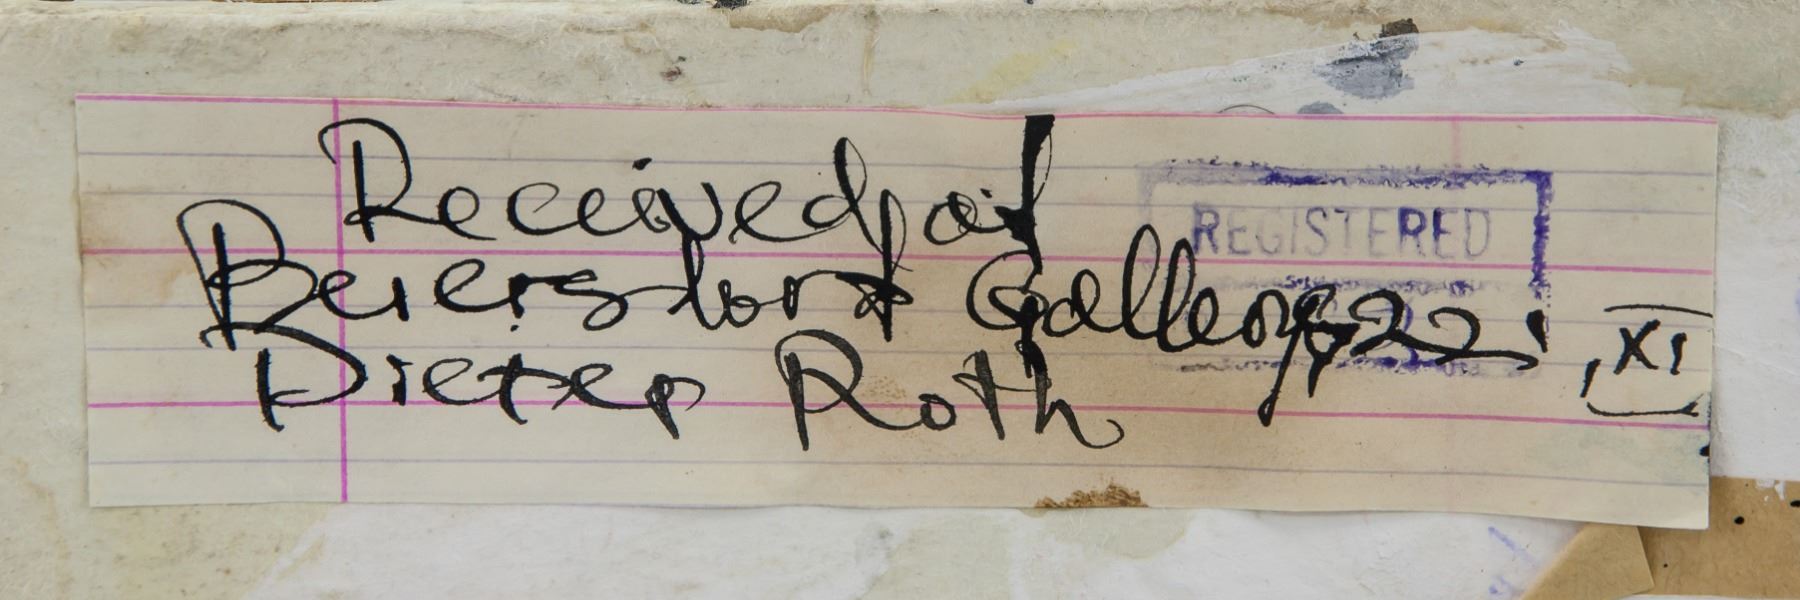 Received at
REGISTERED
Beiersdorf Gallery, 22.
XI
Dieter Roth